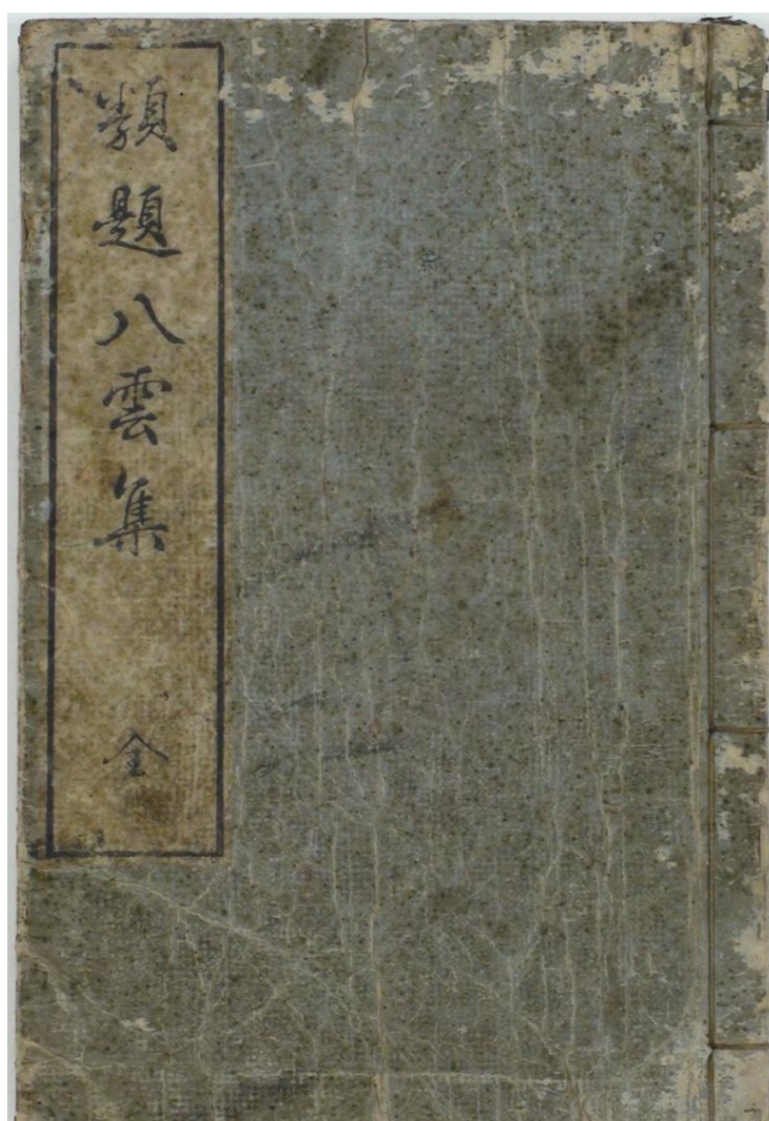 類題八雲集
全